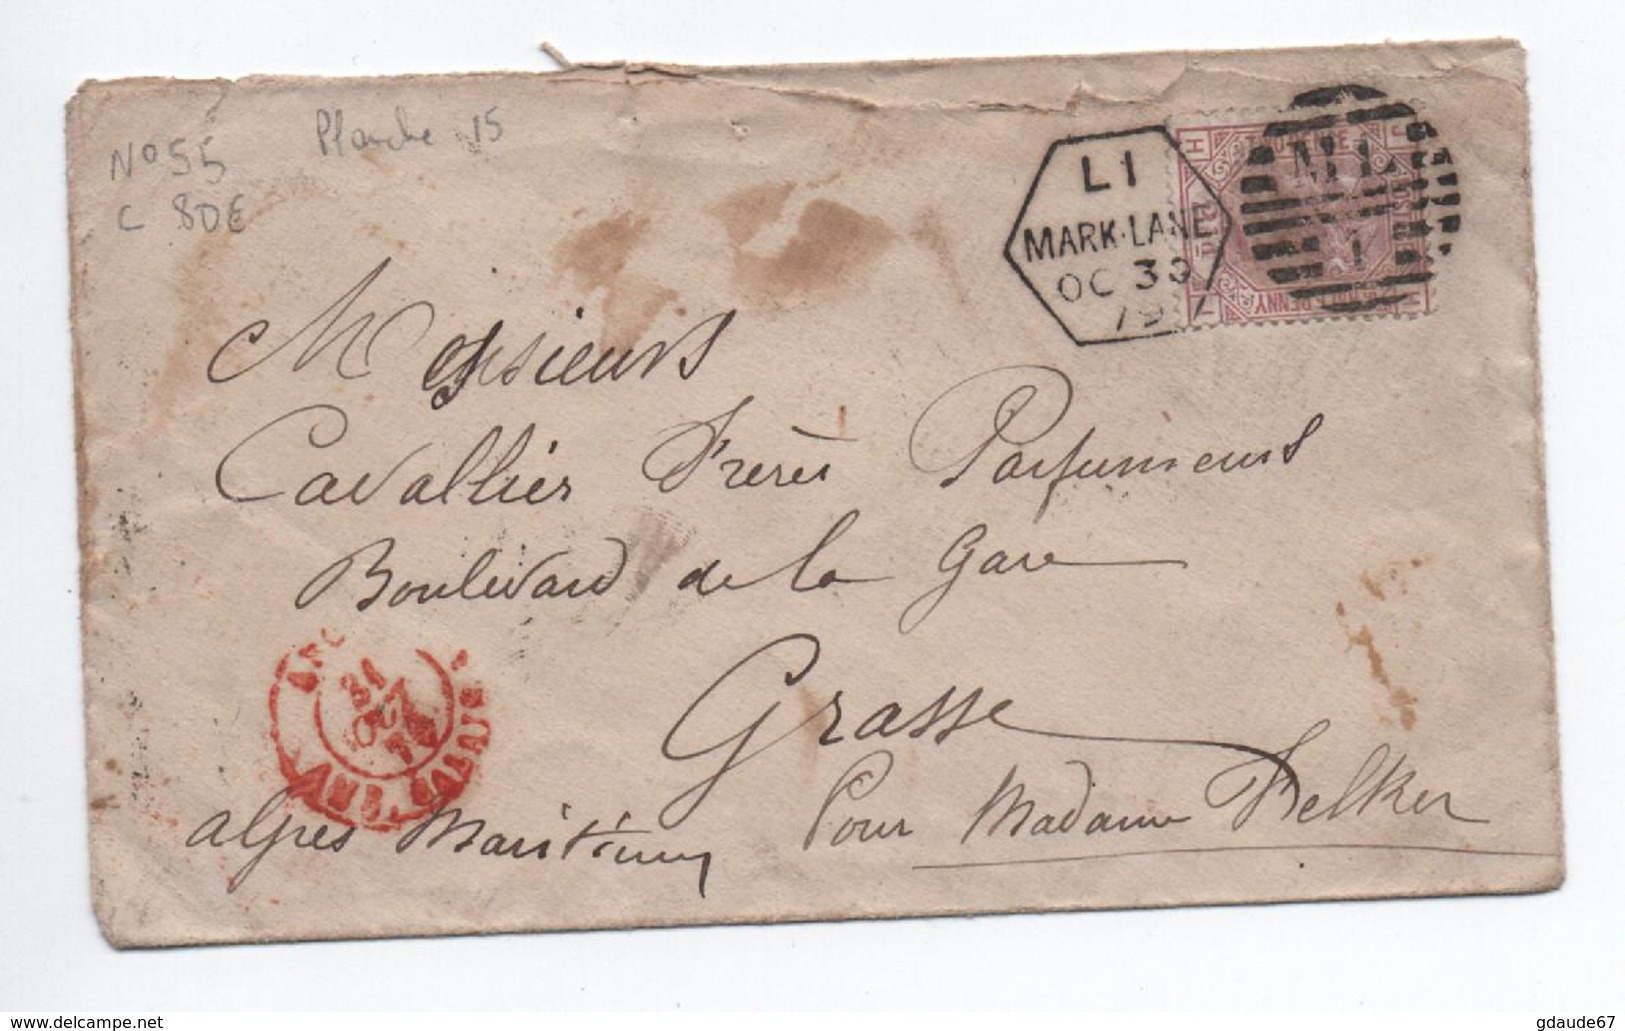 Nº 55
C 80€
Planche 15
L1
MARK·LANE
OC 30
79
H J
ML
1
PENNY
Messieurs
Cavallier Frères Parfumeurs
Boulevard de la Gare
Grasse
Alpes Maritimes
Pour Madame Felker
31
OCT
79
CALAIS
www.delcampe.net
gdaude67